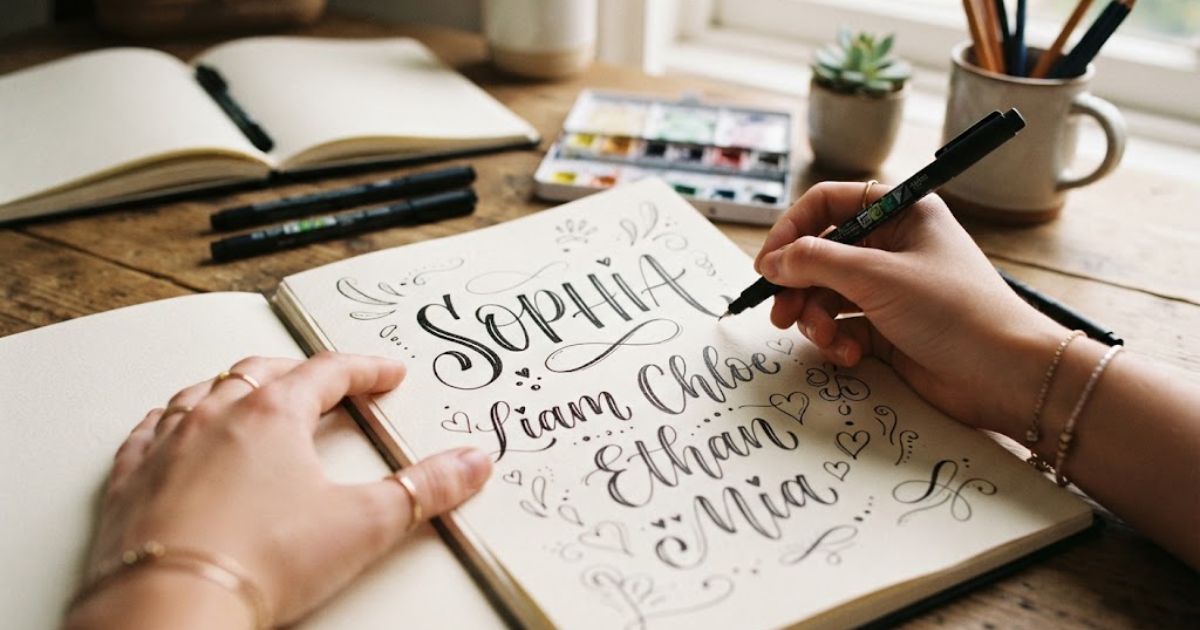 SOPHIA
Liam Chloe
Ethan
Mia